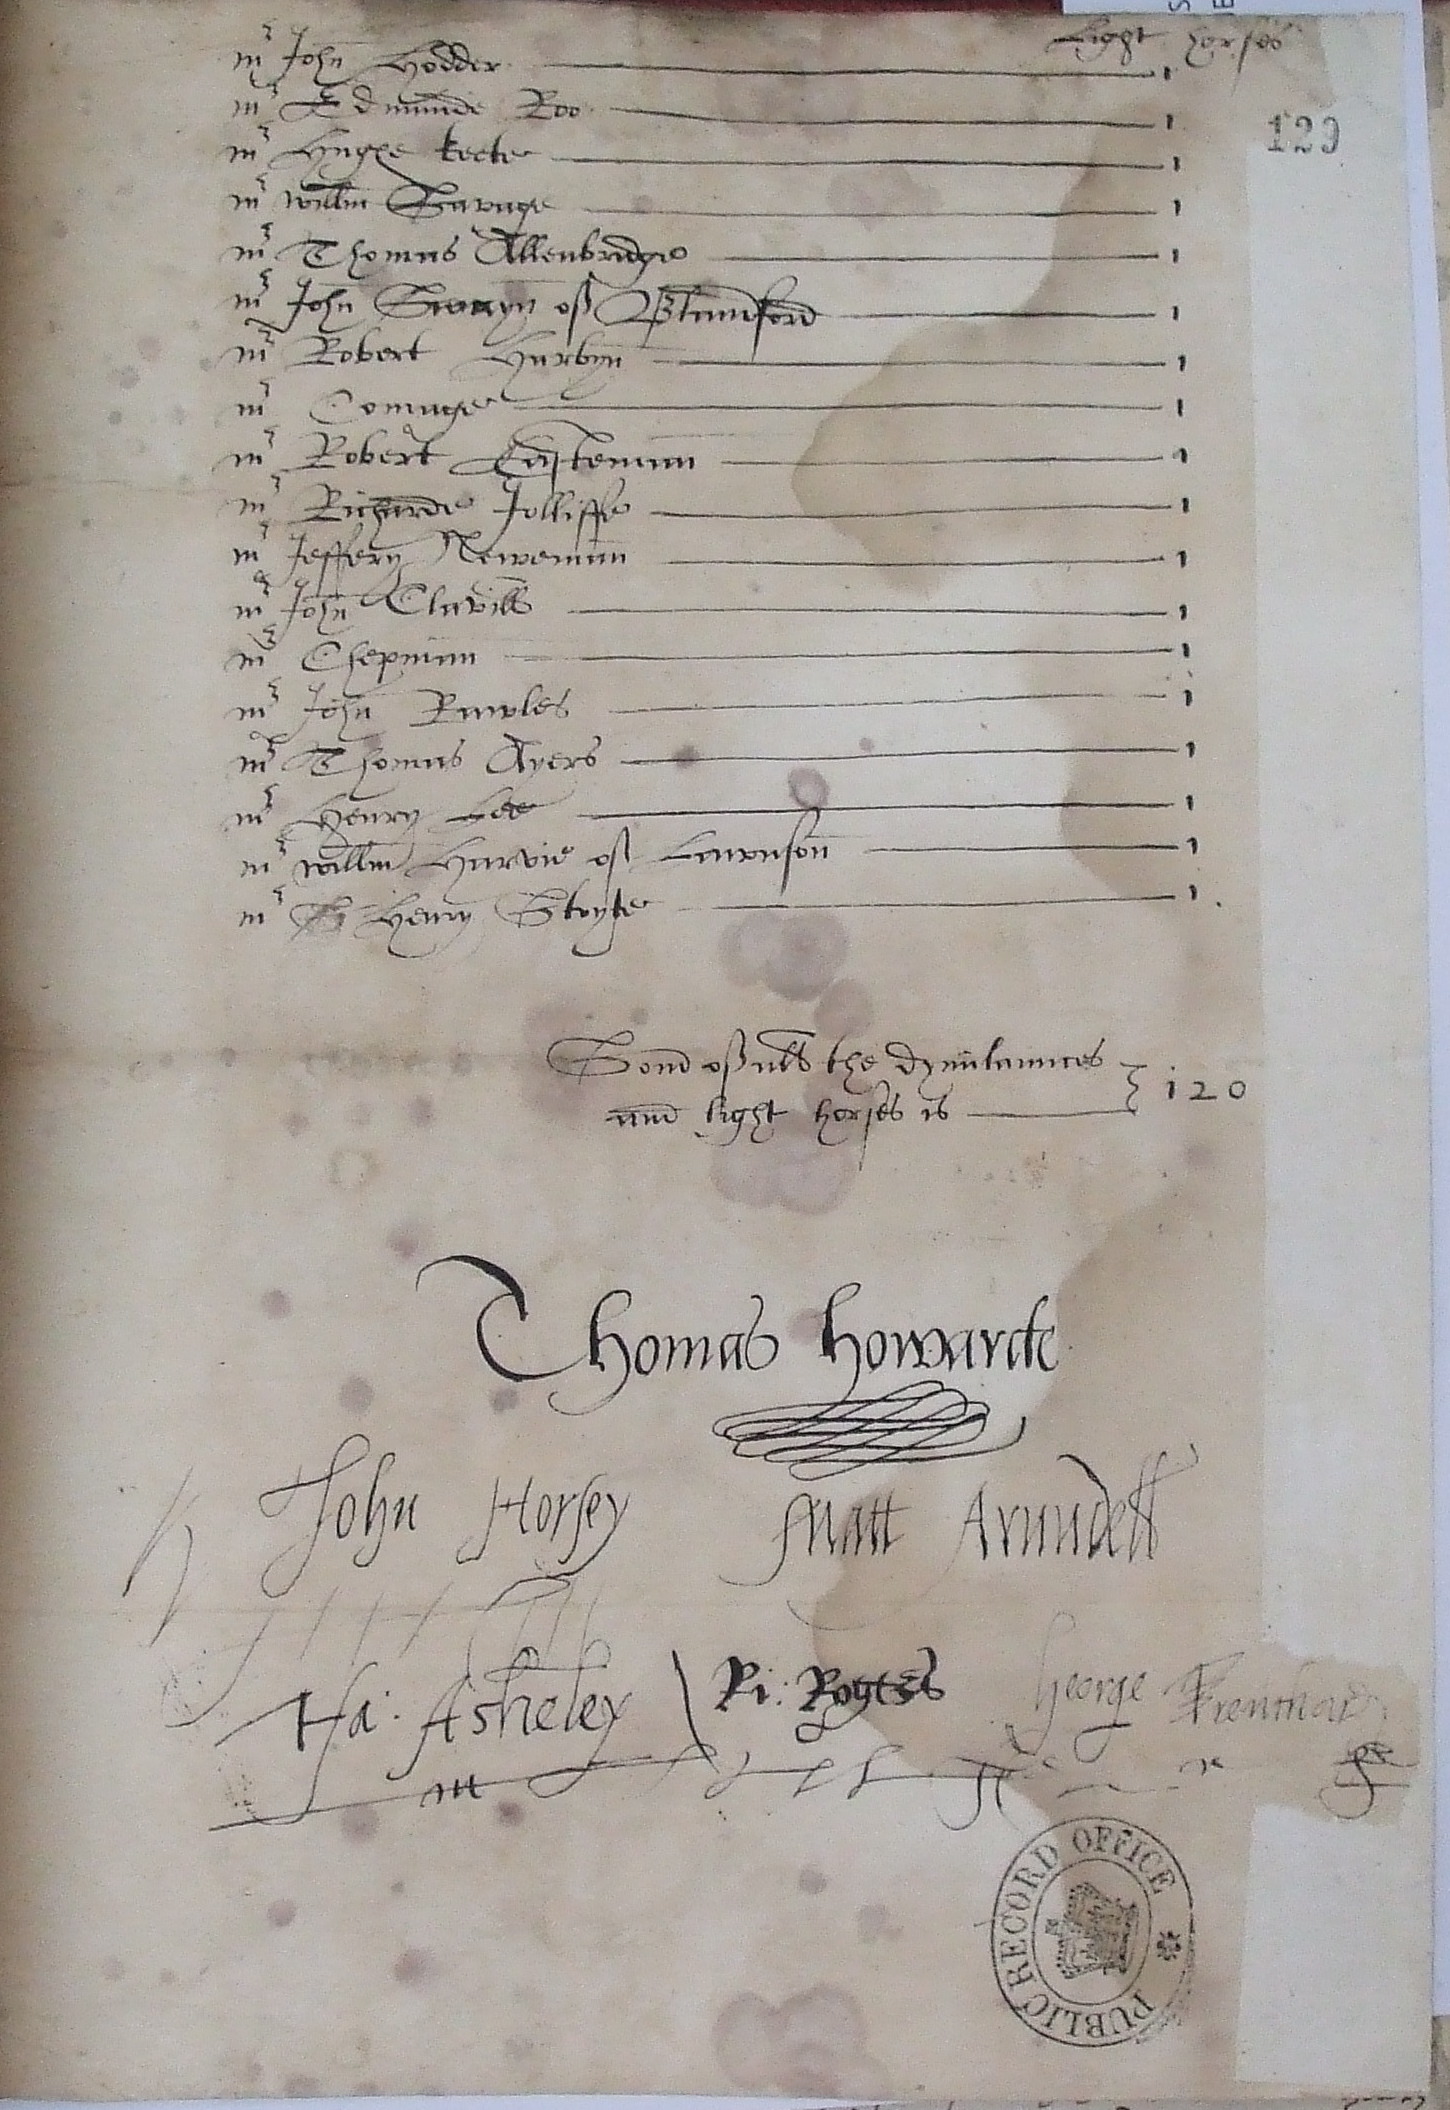 Light horses
129
mr John Hodder 1
mr Edmunde Roo 1
mr Hughe keete 1
mr willm Savage 1
mr Thomas Allenbridge 1
mr John Swayn of Blandford 1
mr Robert Harbyn 1
mr Comage 1
mr Robert Casteman 1
mr Richarde Jolliffe 1
mr Jeffery Neweman 1
mr John Clavill 1
mr Chepman 1
mr John Rawles 1
mr Thomas Ayers 1
mr Henry Lee 1
mr willm Harvie of 1
mr Henry Stoyte 1
Som of all the dymilaunces
and light horses is 120
Thomas howarde
John Horsey Matt Arundell
Ha: Asheley Ri: Rogers George Trenchard
PUBLIC RECORD OFFICE